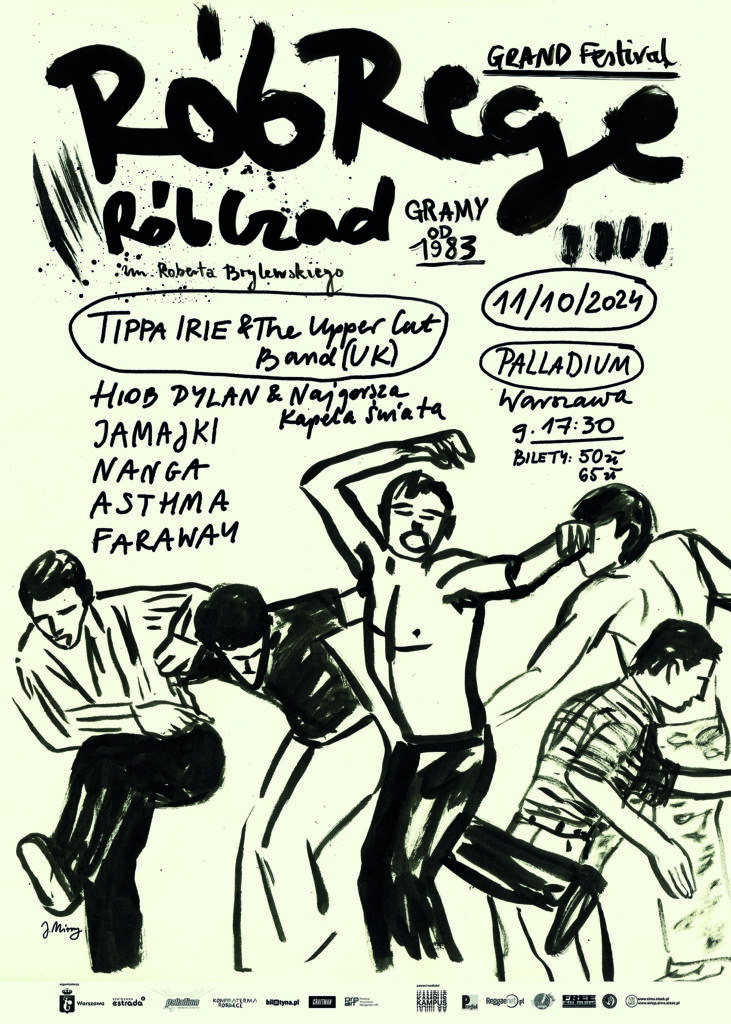 GRAND Festival
Rób Rege
Rób Czad
GRAMY
OD
1983
im. Roberta Brylewskiego
11/10/2024
TIPPA IRIE & The Upper Cut
Band (UK)
PALLADIUM
Warszawa
g. 17:30
BILETY: 50 zł
65 zł
HIOB DYLAN & Najgorsza
Kapela Świata
JAMAJKI
NANGA
ASTHMA
FARAWAY
organizatorzy
Warszawa
estrada
palladium
bilotyna.pl
KAMPUS
KAMPUS
Reggaenet.pl
FREE